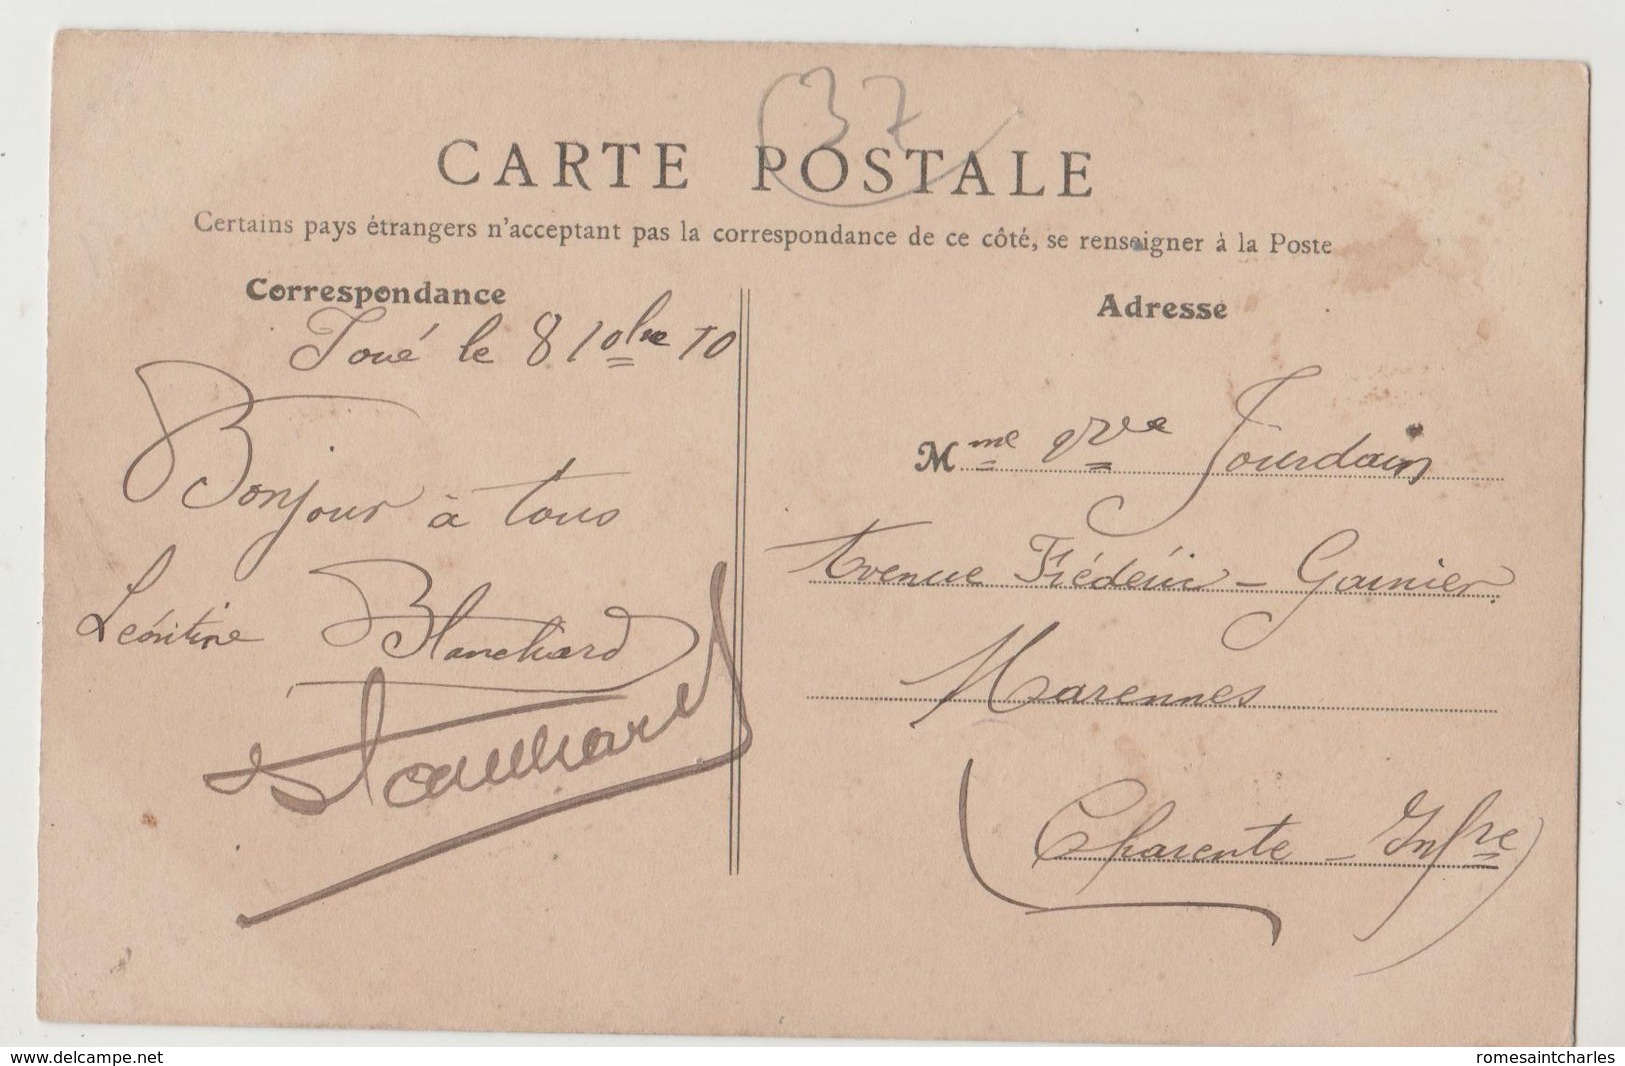 37
CARTE POSTALE
Certains pays étrangers n'acceptant pas la correspondance de ce côté, se renseigner à la Poste
Correspondance
Joué le 8 10bre 10
Bonjour à tous
Léontine Blanchard
Blanchard
Adresse
Mme Vve Jourdain
Avenue Frédéric - Garnier
Marennes
Charente - Infre
www.delcampe.net
romesaintcharles